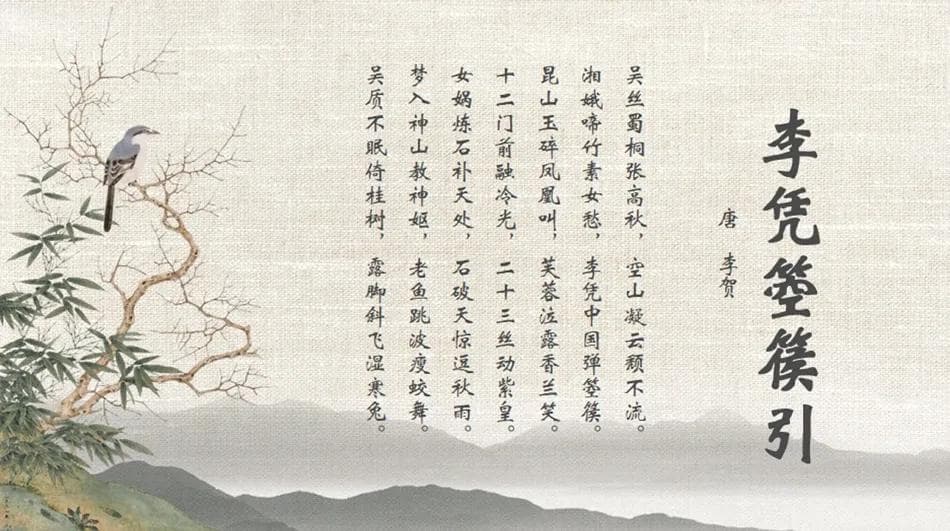 李凭箜篌引
唐 李贺
吴丝蜀桐张高秋，空山凝云颓不流。
湘娥啼竹素女愁，李凭中国弹箜篌。
昆山玉碎凤凰叫，芙蓉泣露香兰笑。
十二门前融冷光，二十三丝动紫皇。
女娲炼石补天处，石破天惊逗秋雨。
梦入神山教神妪，老鱼跳波瘦蛟舞。
吴质不眠倚桂树，露脚斜飞湿寒兔。